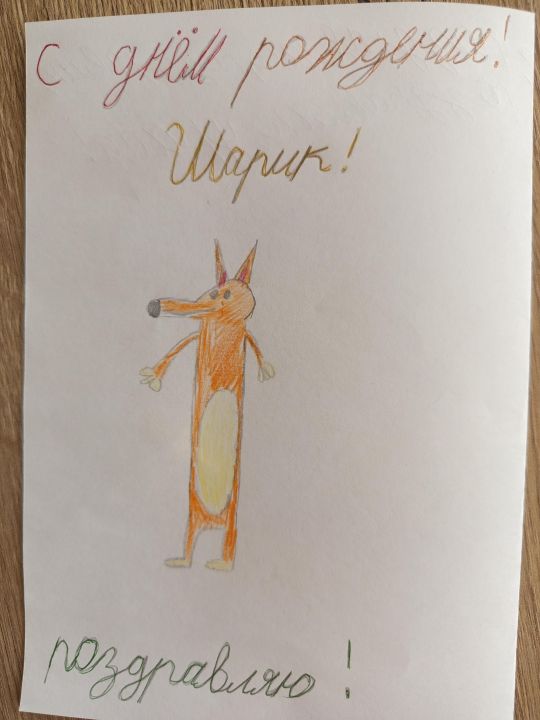 С днём рождения!
Шарик!
поздравляю!